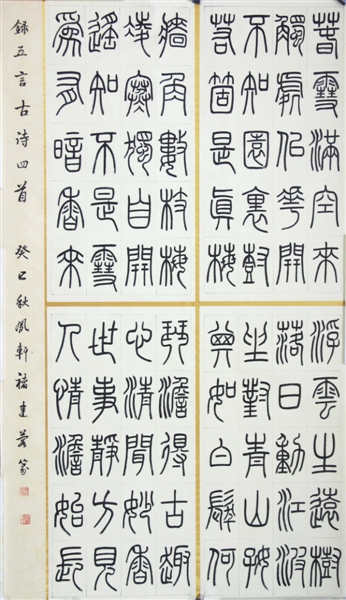 春雪滿空來
觸處似花開
不知園裏樹
若箇是真梅
牆角數枝梅
凌寒獨自開
遙知不是雪
為有暗香來
浮雲生遠樹
落日動江波
坐對青山好
其如白髮何
琴澹得古趣
心清聞妙香
世事靜方見
人情澹始長
錄五言古诗四首 癸巳秋鳳軒 建 篆